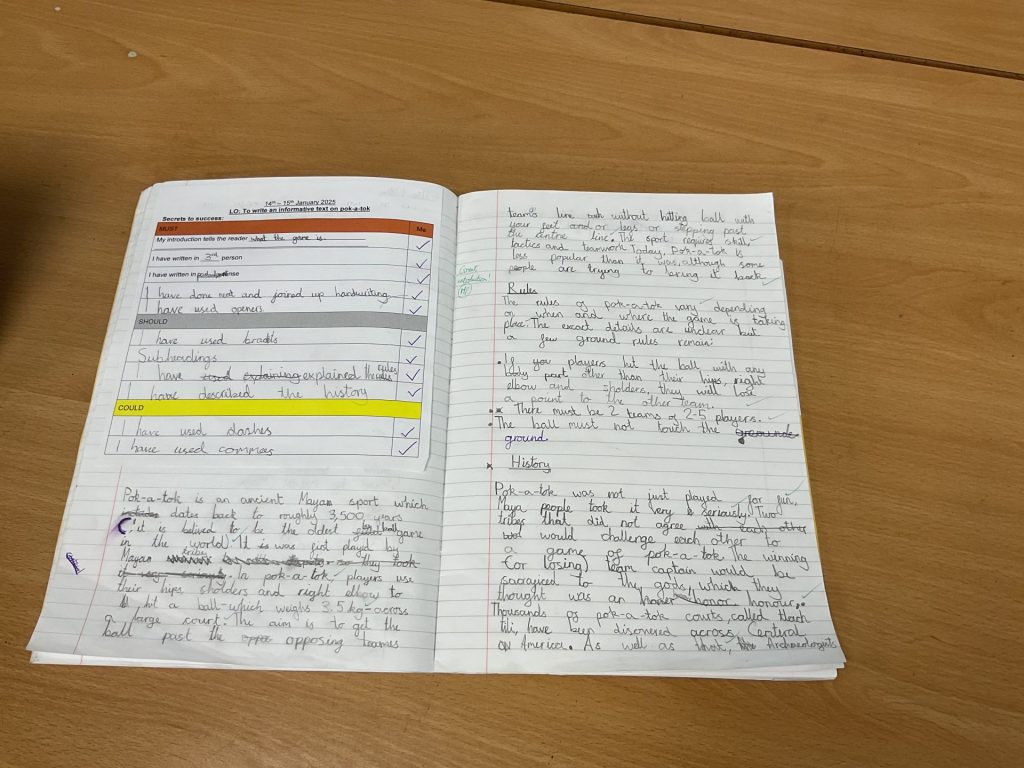 14th – 15th January 2025
LO: To write an informative text on pok-a-tok
Secrets to success:
MUST Me
My introduction tells the reader what the game is. ✓
I have written in 3rd person ✓
I have written in tense ✓
I have done neat and joined up handwriting ✓
I have used openers ✓
SHOULD
I have used brackets ✓
Subheadings ✓
I have used explaining explained the rules ✓
I have described the history ✓
COULD
I have used dashes ✓
I have used commas ✓
Pok-a-tok is an ancient Mayan sport which
dates back to roughly 3,500 years
(it is belived to be the oldest ball game
in the world). It is was first played by
Mayan tribes
In pok-a-tok, players use
their hips, sholders and right elbow to
hit a ball-which weighs 3.5kg-across
a large court. The aim is to get the
ball past the oppo opposing teames
team's line without hitting ball with
your feet and/or legs or stepping past
the centre line. The sport requires skill,
tactics and teamwork. Today, Pok-a-tok is
less popular than it was, although some
people are trying to bring it back.
Great introduction!
Rules
The rules of pok-a-tok vary depending
on when and where the game is taking
place. The exact details are unclear but
a few ground rules remain:
• If you players hit the ball with any
body part other than their hips, right
elbow and sholders, they will lose
a point to the other team.
• There must be 2 teams of 2-5 players.
• The ball must not touch the grounde
ground.
History
Pok-a-tok was not just played for fun,
Maya people took it very seriously. Two
tribes that did not agree with each other
would challenge each other to
a game of pok-a-tok. The winning
(or losing) team captain would be
sacrificed to the gods, which they
thought was an honer honor honour.
Thousands of pok-a-tok courts, called tlach
tli, have been discovered across Central
America. As well as that, Archaeologists